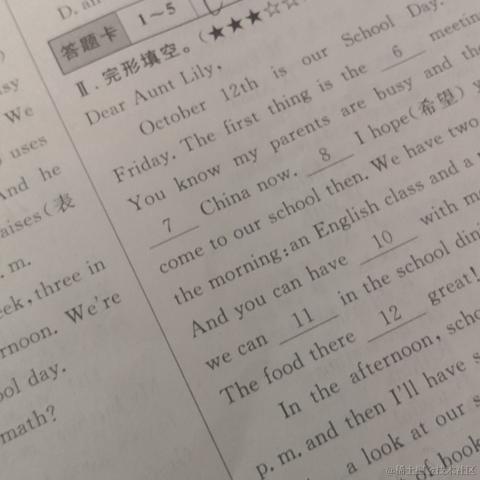 D. an
答题卡 1~5
Ⅱ. 完形填空。(★★★☆☆
Dear Aunt Lily,
October 12th is our School Day.
Friday. The first thing is the 6 meeting
You know my parents are busy and the
7 China now. 8 I hope(希望) y
come to our school then. We have two
the morning:an English class and a
And you can have 10 with m
we can 11 in the school dini
The food there 12 great!
In the afternoon, scho
p. m. and then I'll have s
a look at our s
t of book
sy
We
uses
And he
aises(表
. m.
eek, three in
rnoon. We're
ool day.
math?
@稀土掘金技术社区